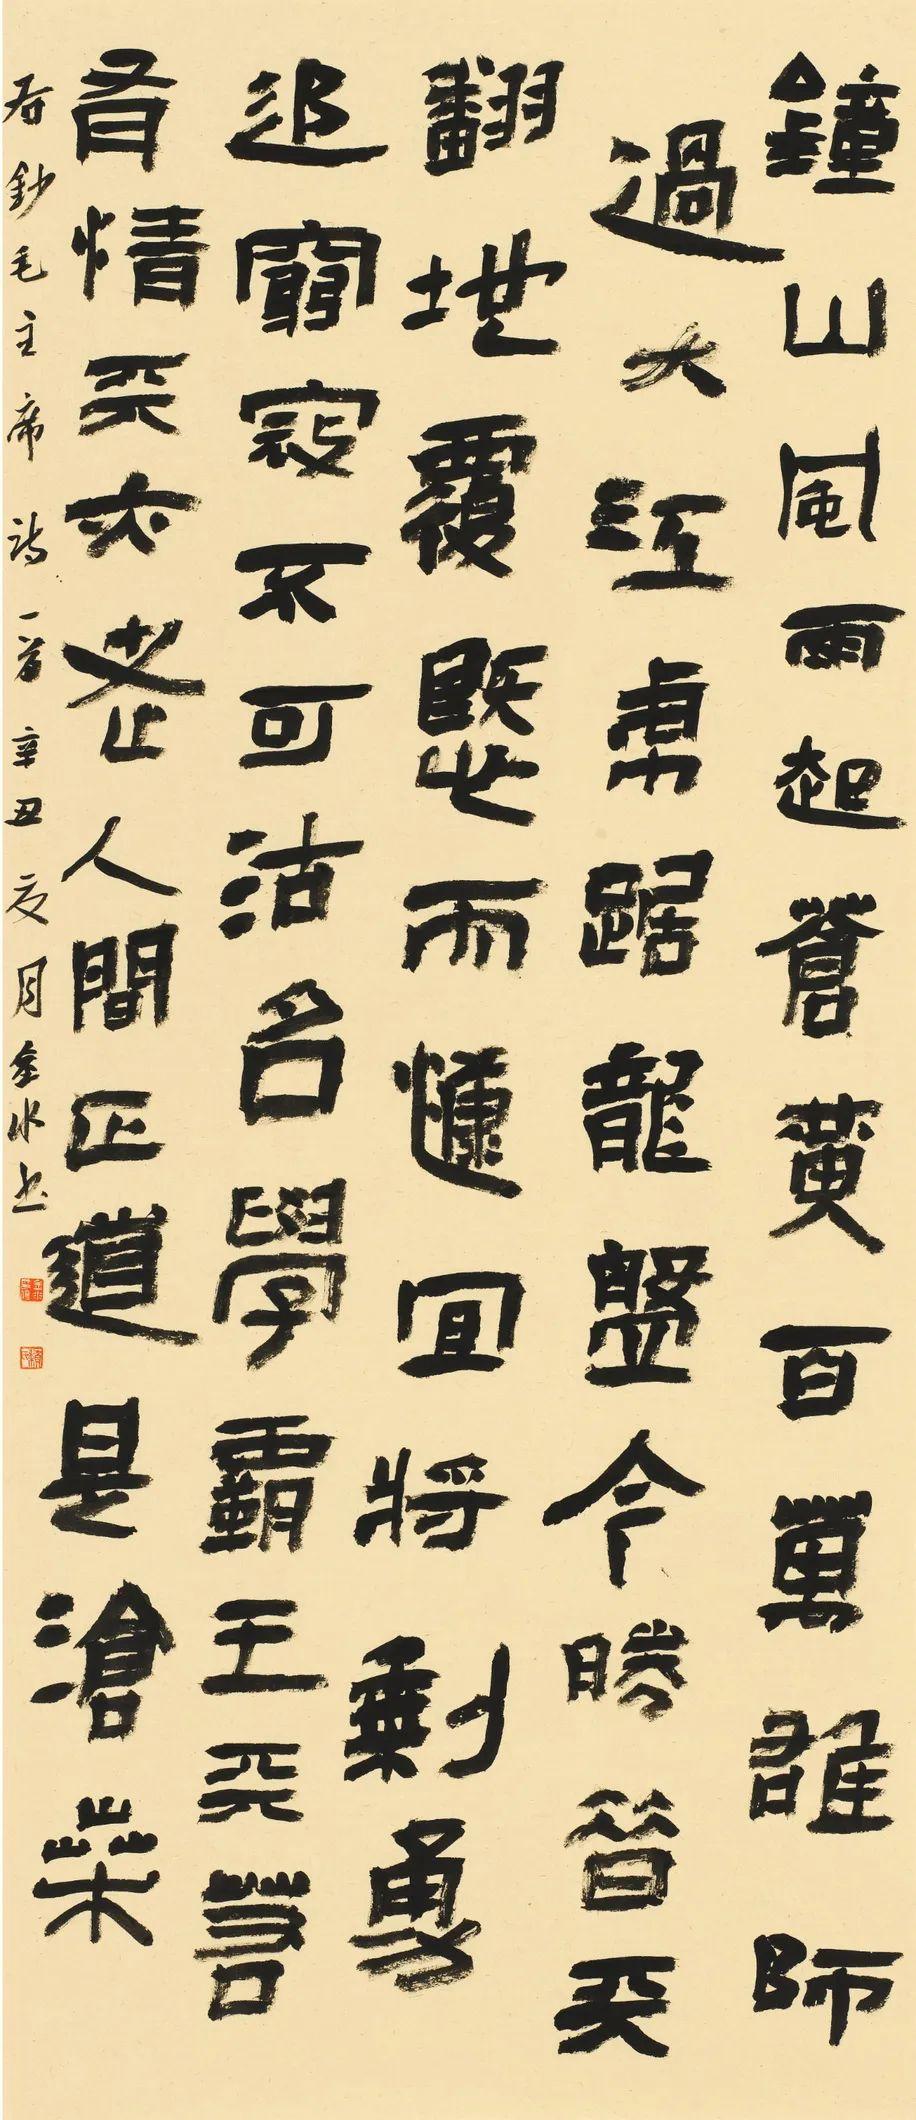 鐘山風雨起蒼黃百萬雄師
過大江虎踞龍盤今勝昔天
翻地覆慨而慷宜將剩勇
追窮寇不可沽名學霸王天若
有情天亦老人間正道是滄桑
右鈔毛主席詩一首辛丑夏月金水书